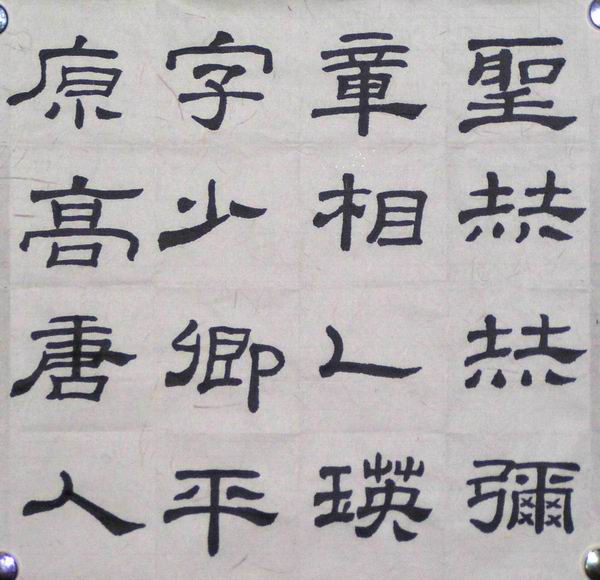 聖赫赫彌
章相乙瑛
字少卿平
原高唐人